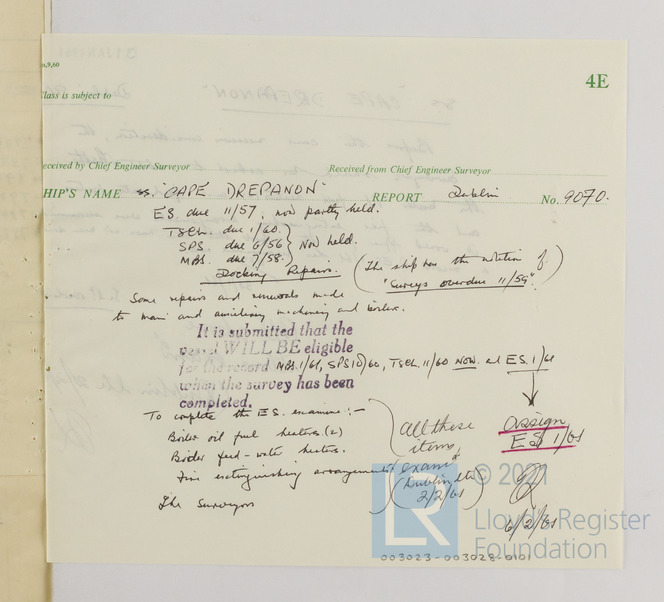 4E
.9,60
lass is subject to
eceived by Chief Engineer Surveyor
Received from Chief Engineer Surveyor
HIP'S NAME ss. "CAPE DREPANON" REPORT Dublin No. 9070.
E.S. due 11/57, now partly held.
TSCH. due 1/60.
SPS. due 6/56 Now held.
MBS. due 7/58.
Docking Repairs. (The ship has the notation of "Surveys overdue 11/59".)
Some repairs and renewals made
to main and auxiliary machinery and boiler.
It is submitted that the
vessel WILL BE eligible
for the record MBS. 1/61, SPS 10/60, TSCH. 11/60 NOW. and ES. 1/61
when the survey has been
completed.
To complete the E.S. examine :-
Boiler oil fuel heaters (2)
Boiler feed-water heaters.
Fire extinguishing arrangements
The Surveyors
All these
items,
exam d
(Dublin ltr
2/2/61)
assign
ES 1/61
6/2/61
© 2021
LR
Lloyd's Register
Foundation
003023-003028-0101